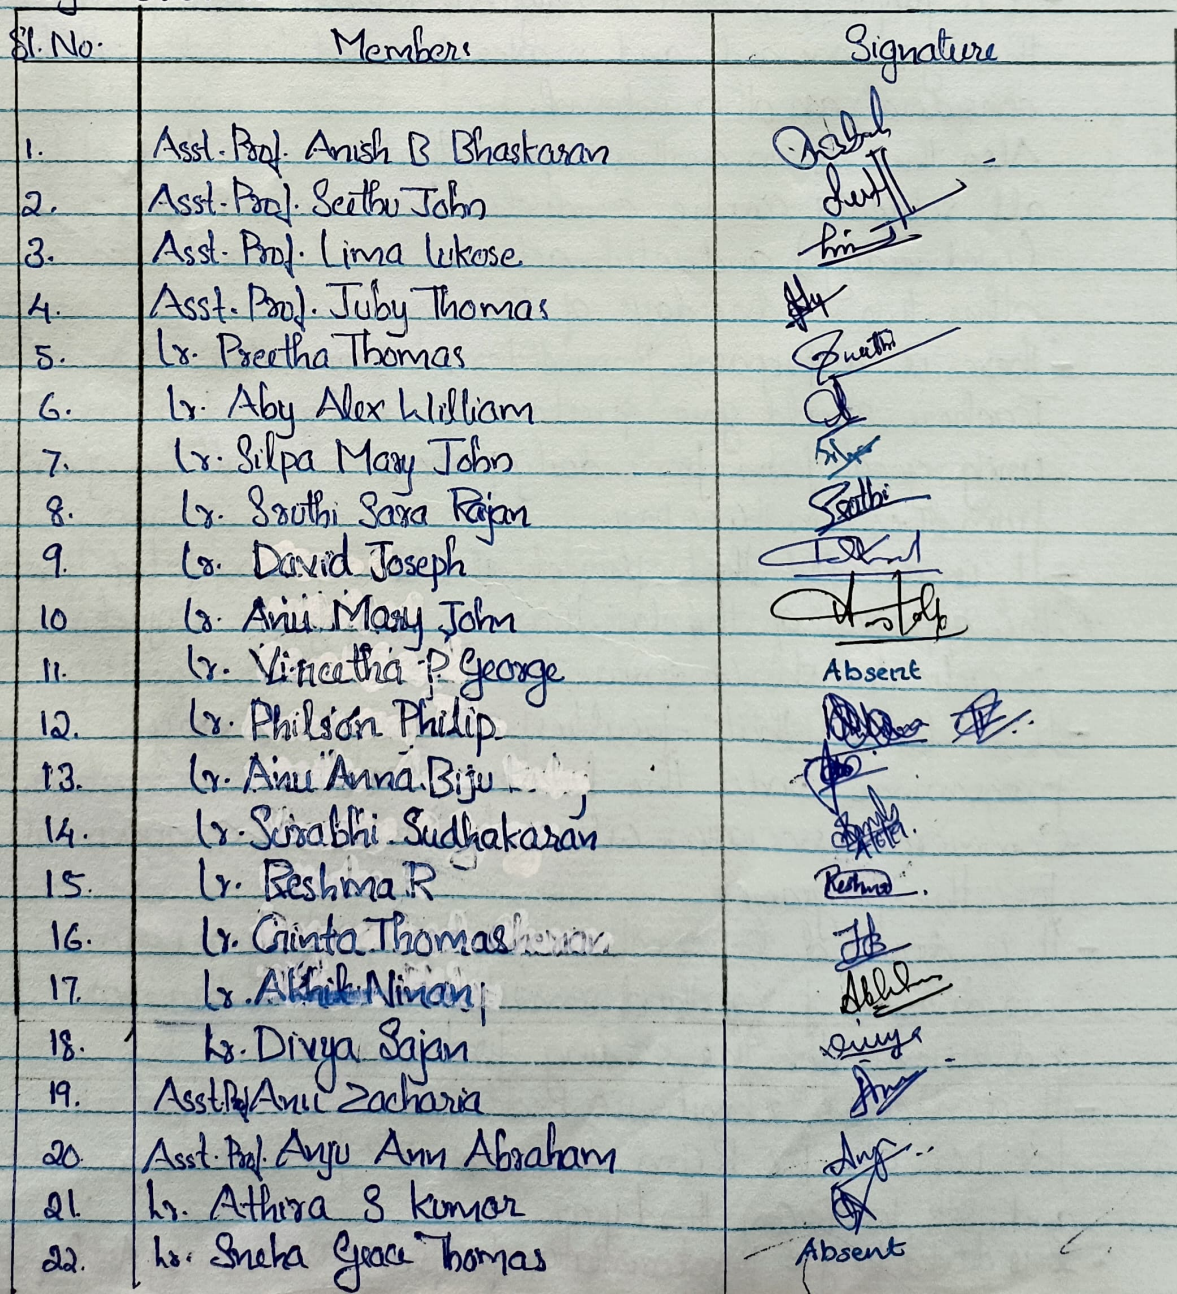 Sl. No. Members Signature
1. Asst. Prof. Anish B Bhaskaran
2. Asst. Prof. Seethu John
3. Asst. Prof. Lima Lukose
4. Asst. Prof. Juby Thomas
5. Lr. Preetha Thomas
6. Lr. Aby Alex William
7. Lr. Silpa Mary John
8. Lr. Sruthi Sara Rajan Sruthi
9. Lr. David Joseph
10 Lr. Anu Mary John
11. Lr. Vineetha P George Absent
12. Lr. Philson Philip
13. Lr. Anu Anna Biju
14. Lr. Surabhi Sudhakaran
15. Lr. Reshma R Reshma
16. Lr. Ginta Thomas
17. Lr. Ninan
18. Lr. Divya Sajan Divya
19. Asst. Prof Anu Zacharia
20. Asst. Prof. Anju Ann Abraham
21. Lr. Athira S Kumar
22. Lr. Sneha Grace Thomas Absent